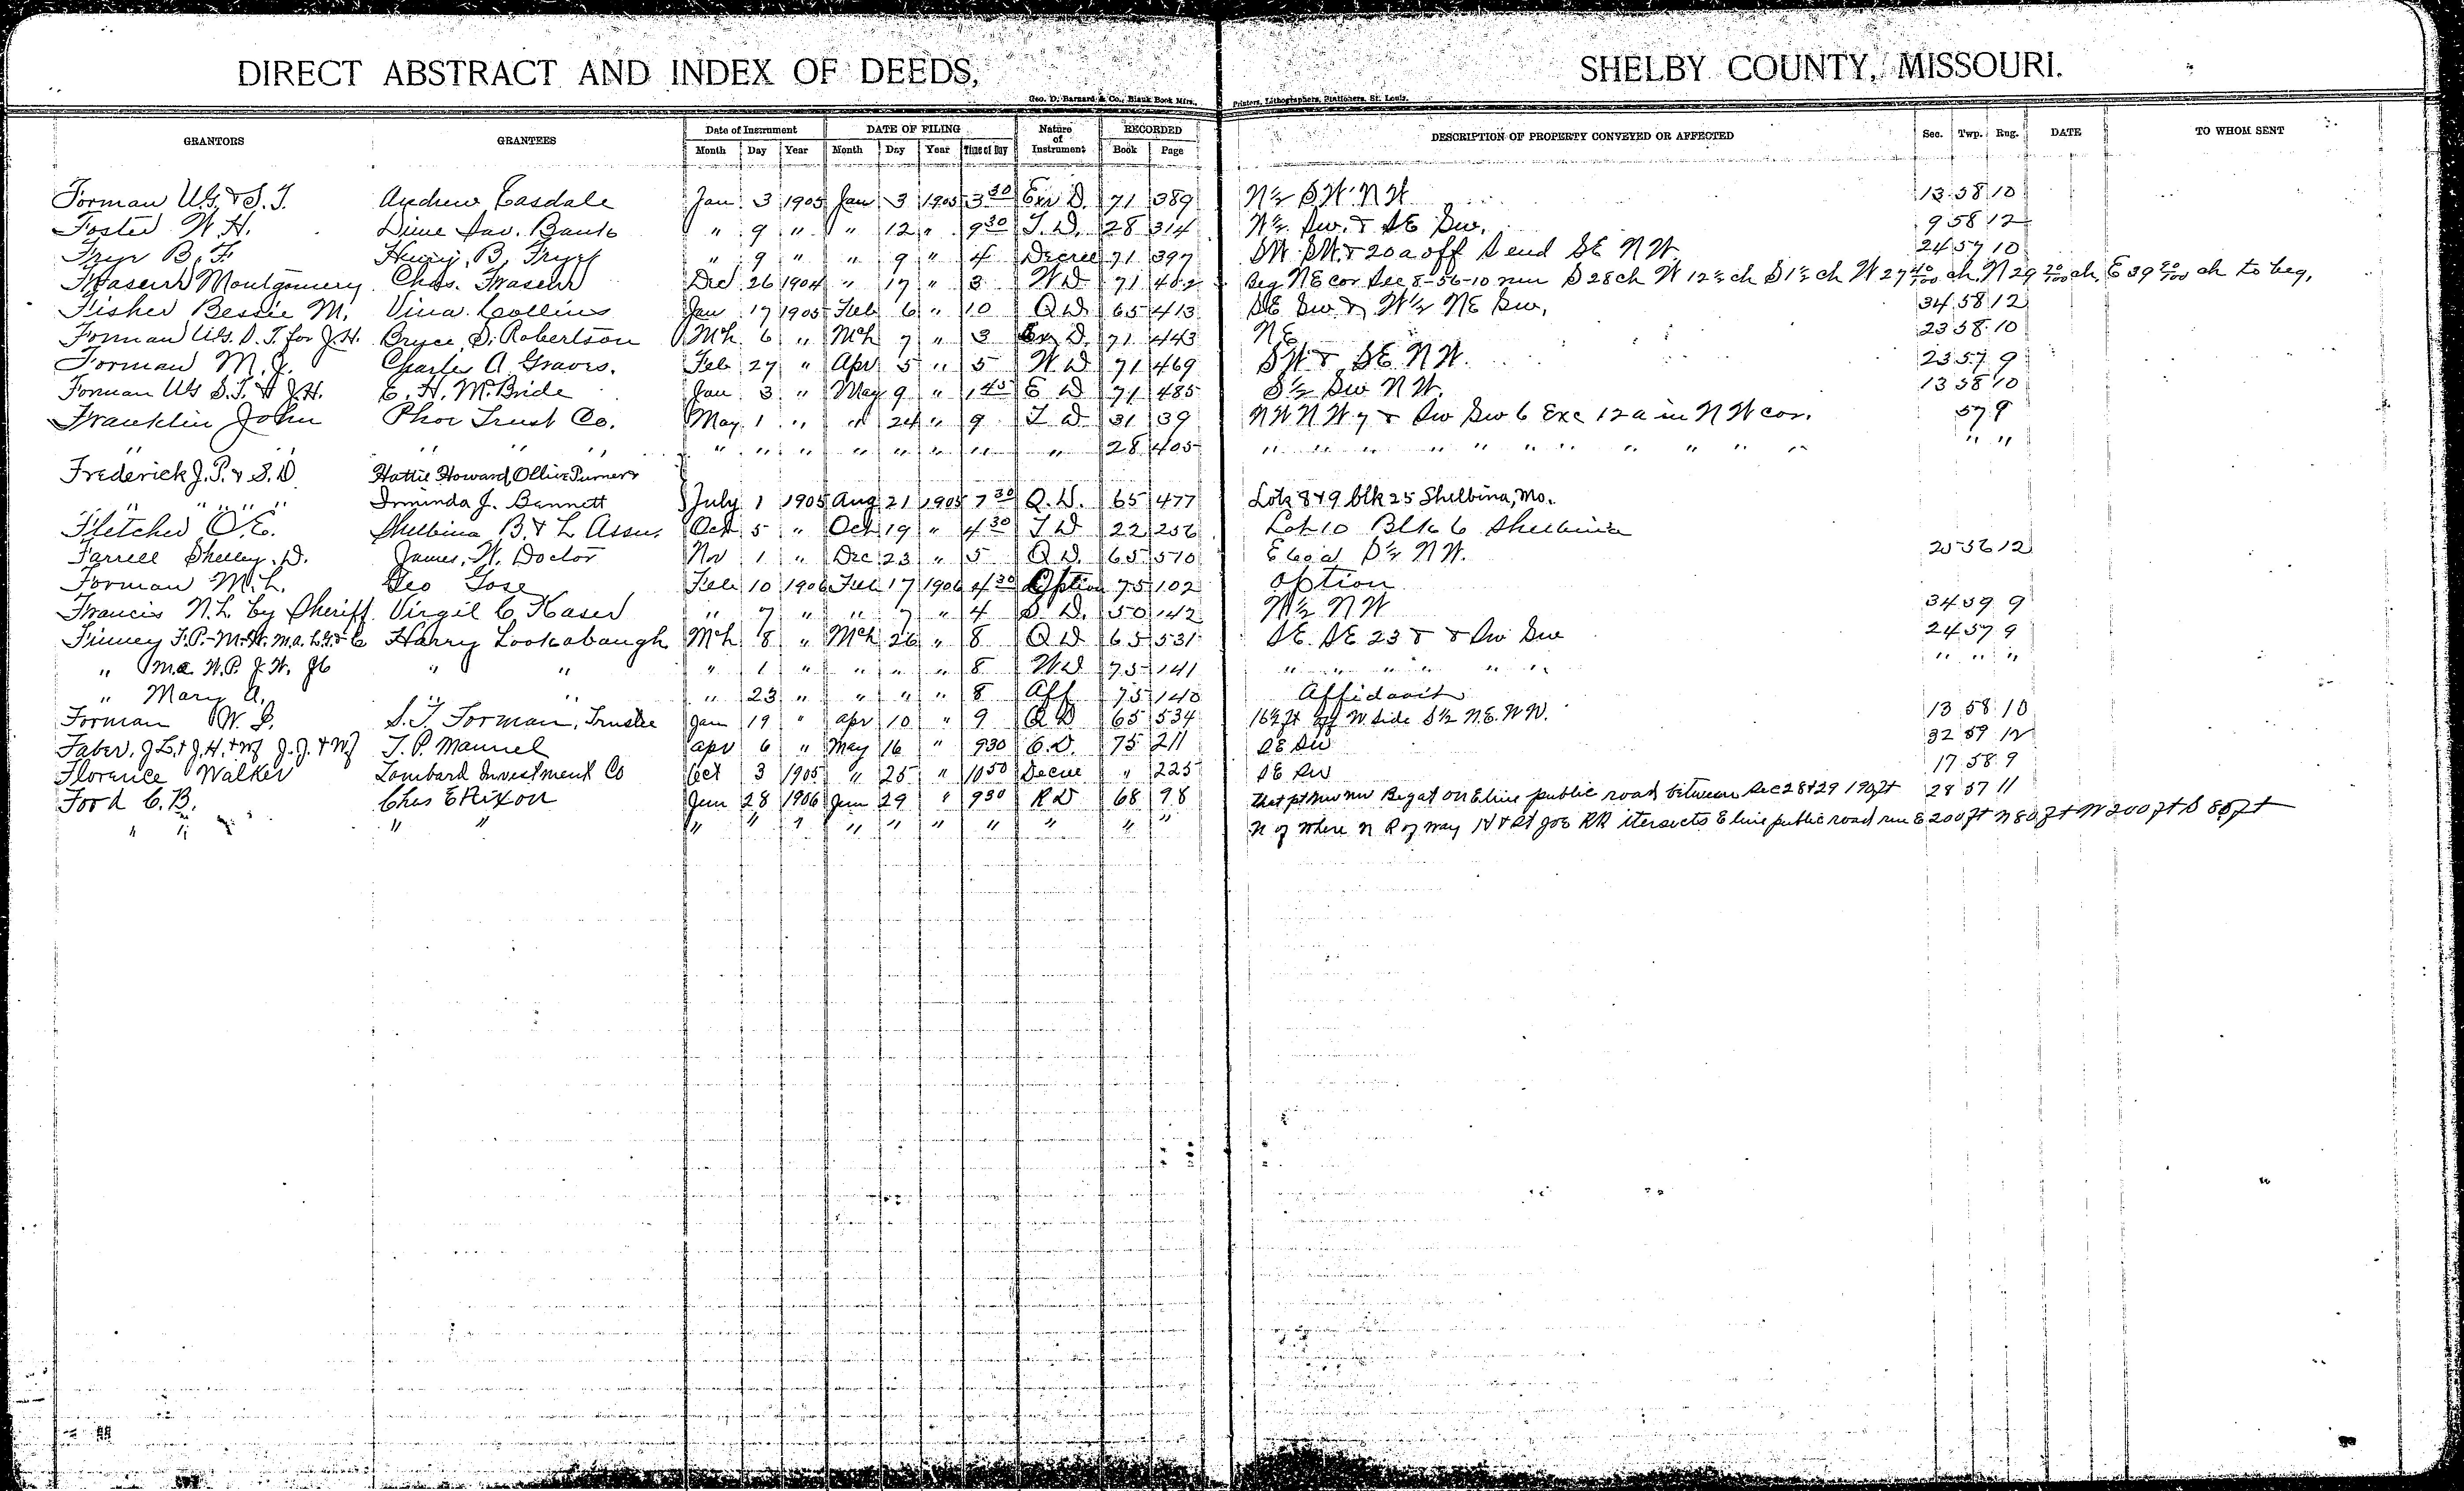 DIRECT ABSTRACT AND INDEX OF DEEDS, SHELBY COUNTY, MISSOURI.
Geo. D. Barnard & Co., Blank Book Mfrs., Printers, Lithographers, Stationers, St. Louis.
GRANTORS GRANTEES Date of Instrument DATE OF FILING Nature of Instrument RECORDED DESCRIPTION OF PROPERTY CONVEYED OR AFFECTED Sec. Twp. Rng. DATE TO WHOM SENT
Month Day Year Month Day Year Time of Day Book Page
Forman U.G. & S.T. Andrew Easdale Jan 3 1905 Jan 3 1905 3 30 Exr D. 71 389 N½ SW NW 13 58 10
Foster W. H. Dime Sav. Bank " 9 " " 12 " 9 30 T. D. 28 314 N½ Sw. & SE Sw. 9 58 12
Fryr B. F. Henry B. " 9 " " 9 " 4 Decree 71 397 SW SW & 20 a off S end SE NW. 24 57 10
Montgomery Chas. Dec 26 1904 " 17 " 3 W D 71 402 Beg NE cor Sec 8-56-10 run S 28 ch W 12½ ch S 1½ ch W 27 40/100 ch. N 29 20/100 ch. E 39 90/100 ch to beg.
Fisher Bessie M. Vina Collins Jan 17 1905 Feb 6 " 10 Q D 65 413 SE Sw & W½ NE Sw. 34 58 12
Forman U.G. S. T. for J.H. Bryce S. Robertson Mch 6 " Mch 7 " 3 Ex D. 71 443 NE 23 58 10
Forman M. J. Charles A Graves. Feb 27 " Apr 5 " 5 W. D 71 469 SW & SE NW. 23 57 9
Forman UG S.T. & J.H. E. H. McBride Jan 3 " May 9 " 1 45 E D 71 485 S½ Sw NW. 13 58 10
Franklin John Phoe Trust Co. May 1 " " 24 " 9 T D 31 39 NW NW 7 & Sw Sw 6 Exc 12 a in NW cor. 57 9
" " " " " " " " " " " " 28 405 " " " " " " " " " " " " "
Frederick J. P. & S. D Hattie Howard, Ollive Turner
" " " " " Irminda J. Bennett July 1 1905 Aug 21 1905 7 30 Q. D. 65 477 Lots 8 & 9 blk 25 Shelbina, Mo.
Fletcher O. E. Shelbina B. & L Assn. Oct 5 " Oct 19 " 4 30 T D 22 256 Lot 10 Blk 6 Shelbina
Farrell Shelley D. James W. Doctor Nov 1 " Dec 23 " 5 Q D. 65 570 E 60 a S½ NW. 25 56 12
Forman M. L. Geo Gose Feb 10 1906 Feb 17 1906 4 30 Option 75 102 Option
Francis N. L. by Sheriff Virgil C Kaser " 7 " " 7 " 4 S D. 50 142 W½ NW 34 59 9
Finney F.P.-M.H. M.A. Harry Lookabaugh Mch 8 " Mch 26 " 8 Q D 65 531 SE SE 23 & & Sw Sw 24 57 9
" M.A. W.P. J.W. " " " 1 " " " " 8 W D 75 141 " " " " " " " " "
" Mary A. " " " 23 " " " " 8 Aff 75 140 Affidavit
Forman W. S. S. T. Forman, Trustee Jan 19 " Apr 10 " 9 Q D 65 534 16½ ft off W. side S½ N.E. NW. 13 58 10
Faber, J L. & J.H. & wf J. J. & wf T. P. Manuel Apr 6 " May 16 " 9 30 C. D. 75 211 SE SW 32 59 12
Florence Walker Lombard Investment Co Oct 3 1905 " 25 " 10 50 Decree " 225 SE SW 17 58 9
Ford C. B. Chas E Hixon Jun 28 1906 Jun 29 " 9 30 R D 68 98 That pt NW NW Beg at on E line public road between Sec 28 & 29 190 ft 28 57 11
" " " " " " " " " " " " " " N of where N R of way H & St Joe RR itersects E line public road run E 200 ft N 80 ft W 200 ft S 80 ft